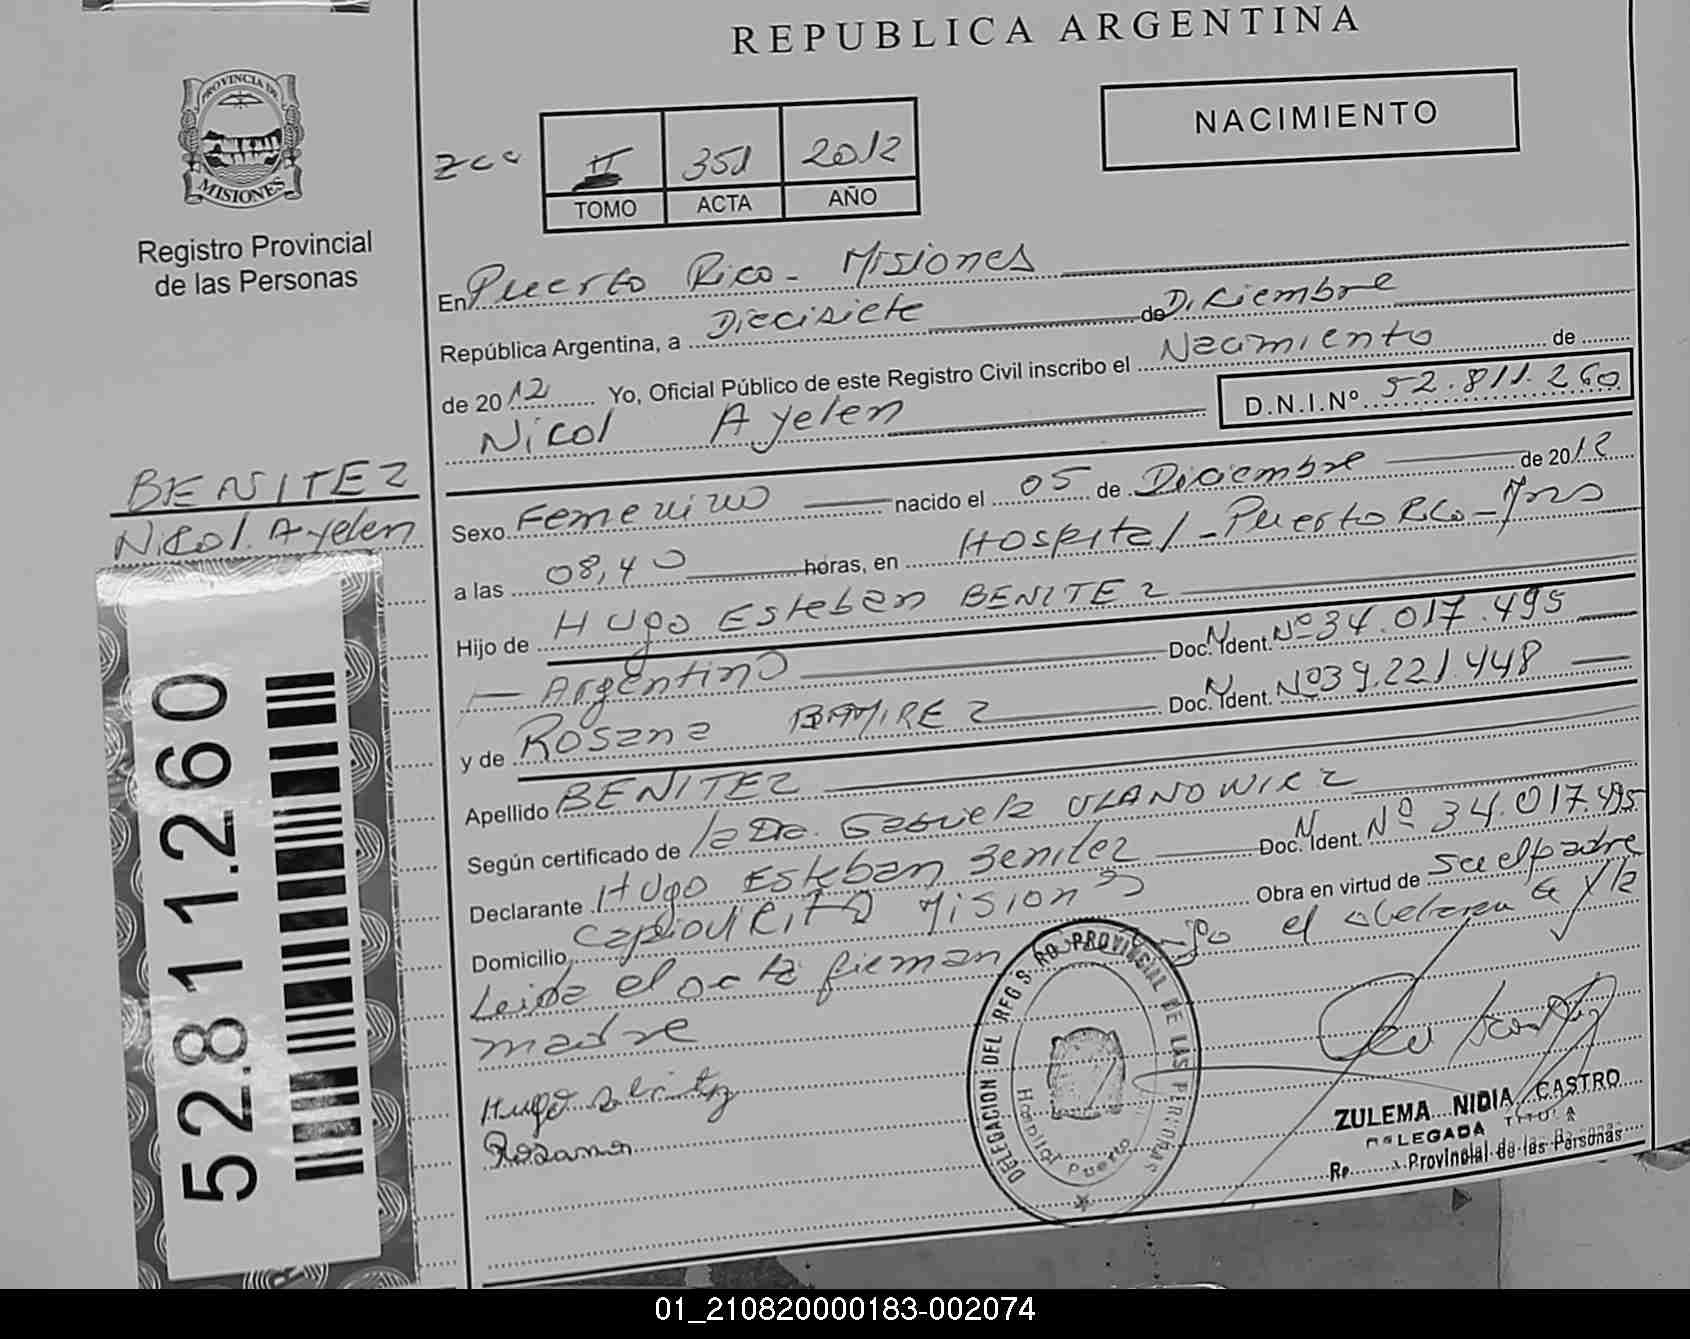 REPUBLICA ARGENTINA
PROVINCIA DE
MISIONES
Registro Provincial
de las Personas
NACIMIENTO
II 351 2012
TOMO ACTA AÑO
En Puerto Rico - Misiones
República Argentina, a Diecisiete de Diciembre
de 2012 Yo, Oficial Público de este Registro Civil inscribo el Nacimiento de
Nicol Ayelen D.N.I.Nº 52.811.260
BENITEZ
Nicol Ayelen
Sexo Femenino nacido el 05 de Diciembre de 2012
a las 08,40 horas, en Hospital - Puerto Rico - Mns
Hijo de Hugo Esteban BENITEZ
Argentino Doc. N. Ident. Nº 34.017.495
y de Rosana RAMIREZ Doc. N. Ident. Nº 39.221.448
Apellido BENITEZ
Según certificado de la Dra. Gabriela ULANOWICZ
Declarante Hugo Esteban Benitez Doc. N. Ident. Nº 34.017.495
Domicilio Capiovicito Misiones Obra en virtud de Ser el padre
Leida el acta firman el declarante y la
madre
Hugo Benitez
Rosana
DELEGACION DEL REG. PROVINCIAL DE LAS PERSONAS
Hospital Puerto
ZULEMA NIDIA CASTRO
DELEGADA TITULAR
Re Provincial de las Personas
52.811.260
01_210820000183-002074